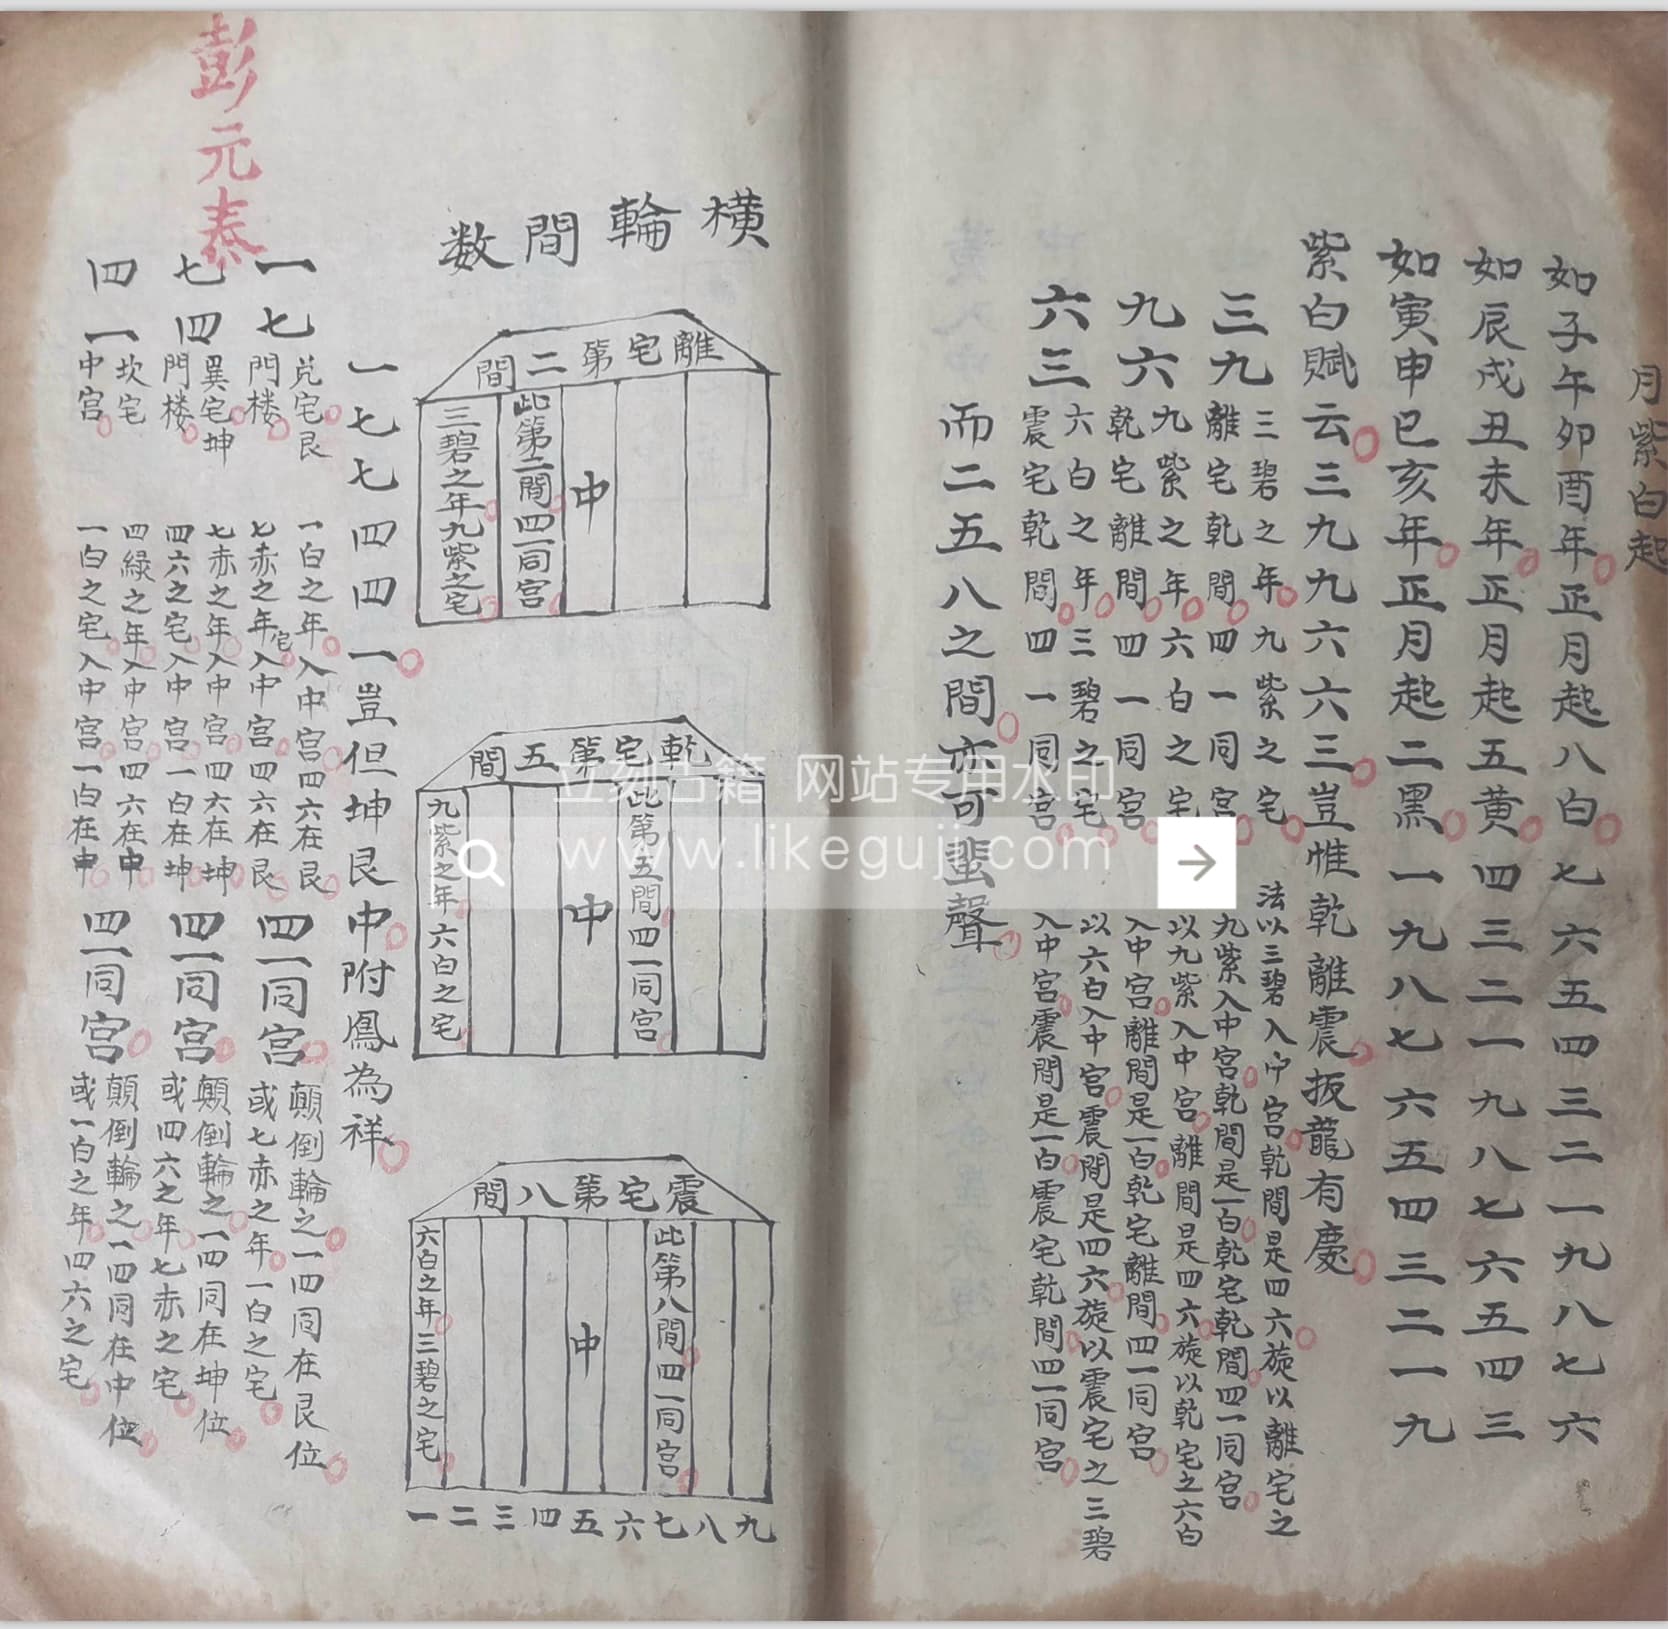 月紫白起
如子午卯酉年正月起八白七六五四三二一九八七六
如辰戌丑未年正月起五黄四三二一九八七六五四三
如寅申巳亥年正月起二黑一九八七六五四三二一九
紫白賦云三九九六六三豈惟乾離震扳龍有慶
三九
三碧之年九紫之宅
離宅乾間四一同宮
法以三碧入中宮乾間是四六旋以離宅之
九紫入中宮乾間是一白乾宅乾間四一同宮
九六
九紫之年六白之宅
乾宅離間四一同宮
以九紫入中宮離間是四六旋以乾宅之六白
入中宮離間是一白乾宅離間四一同宮
六三
六白之年三碧之宅
震宅乾間四一同宮
以六白入中宮震間是四六旋以震宅之三碧
入中宮震間是一白震宅乾間四一同宮
而二五八之間亦可蜚聲
橫輪間数
離宅第二間
中
此第二間四一同宮
三碧之年九紫之宅
乾宅第五間
此第五間四一同宮
中
九紫之年六白之宅
震宅第八間
此第八間四一同宮
中
六白之年三碧之宅
一二三四五六七八九
一七七四四一豈但坤艮中附鳳為祥
一七
兑宅艮
門楼
一白之年入中宮四六在艮
七赤之年宅入中宮四六在艮
四一同宮
顛倒輪之一四同在艮位
或七赤之年一白之宅
七四
巽宅坤
門楼
七赤之年入中宮四六在坤
四六之宅入中宮一白在坤
四一同宮
顛倒輪之一四同在坤位
或四六之年七赤之宅
四一
坎宅
中宮
四緑之年入中宮四六在中
一白之宅入中宮一白在中
四一同宮
顛倒輪之一四同在中位
或一白之年四六之宅
彭元泰
立刻古籍 网站专用水印
www.likeguji.com